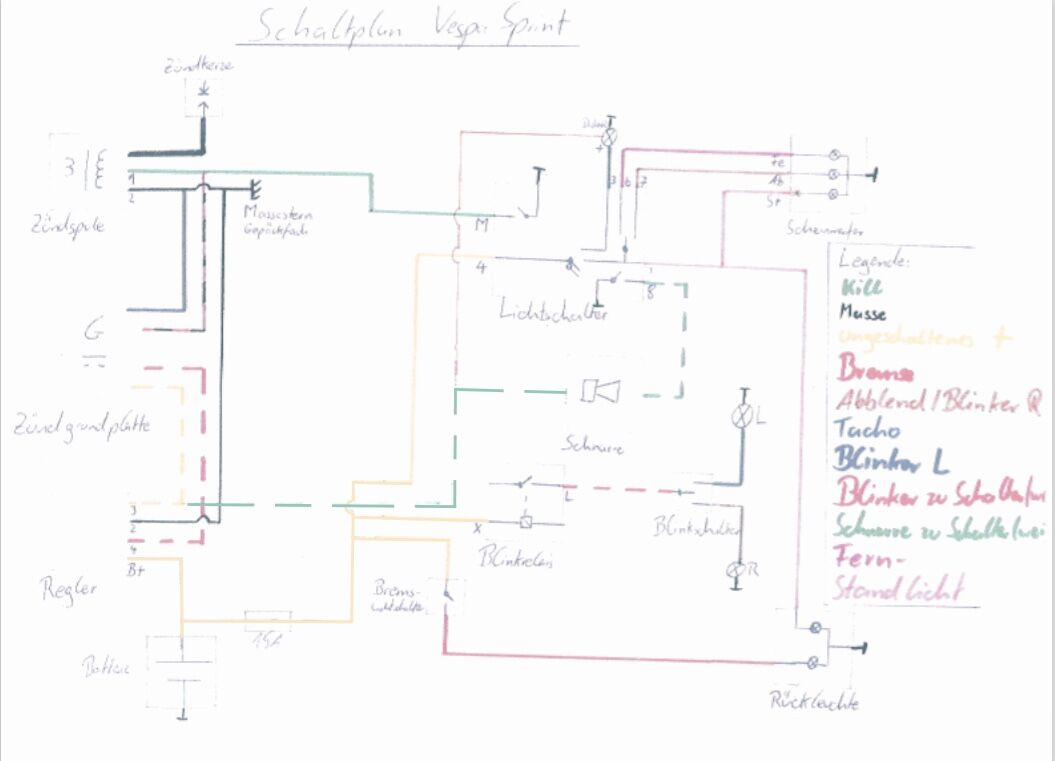 Schaltplan Vespa Sprint
Zündkerze
3
1
2
Zündspule
Massestern
Gepäckfach
G
Zündgrundplatte
3
2
4
B+
Regler
Batterie
15A
M
4
Lichtschalter
8
+
3
6
7
Fe
Ab
St
Scheinwerfer
Schnarre
L
X
Blinkrelais
Blinkschalter
L
R
Brems-
lichtschalter
Rückleuchte
Legende:
Kill
Masse
ungeschaltenes +
Bremse
Abblend/Blinker R
Tacho
Blinker L
Blinker zu Schalter/
Schnarre zu Schalter/wei
Fern-
Standlicht